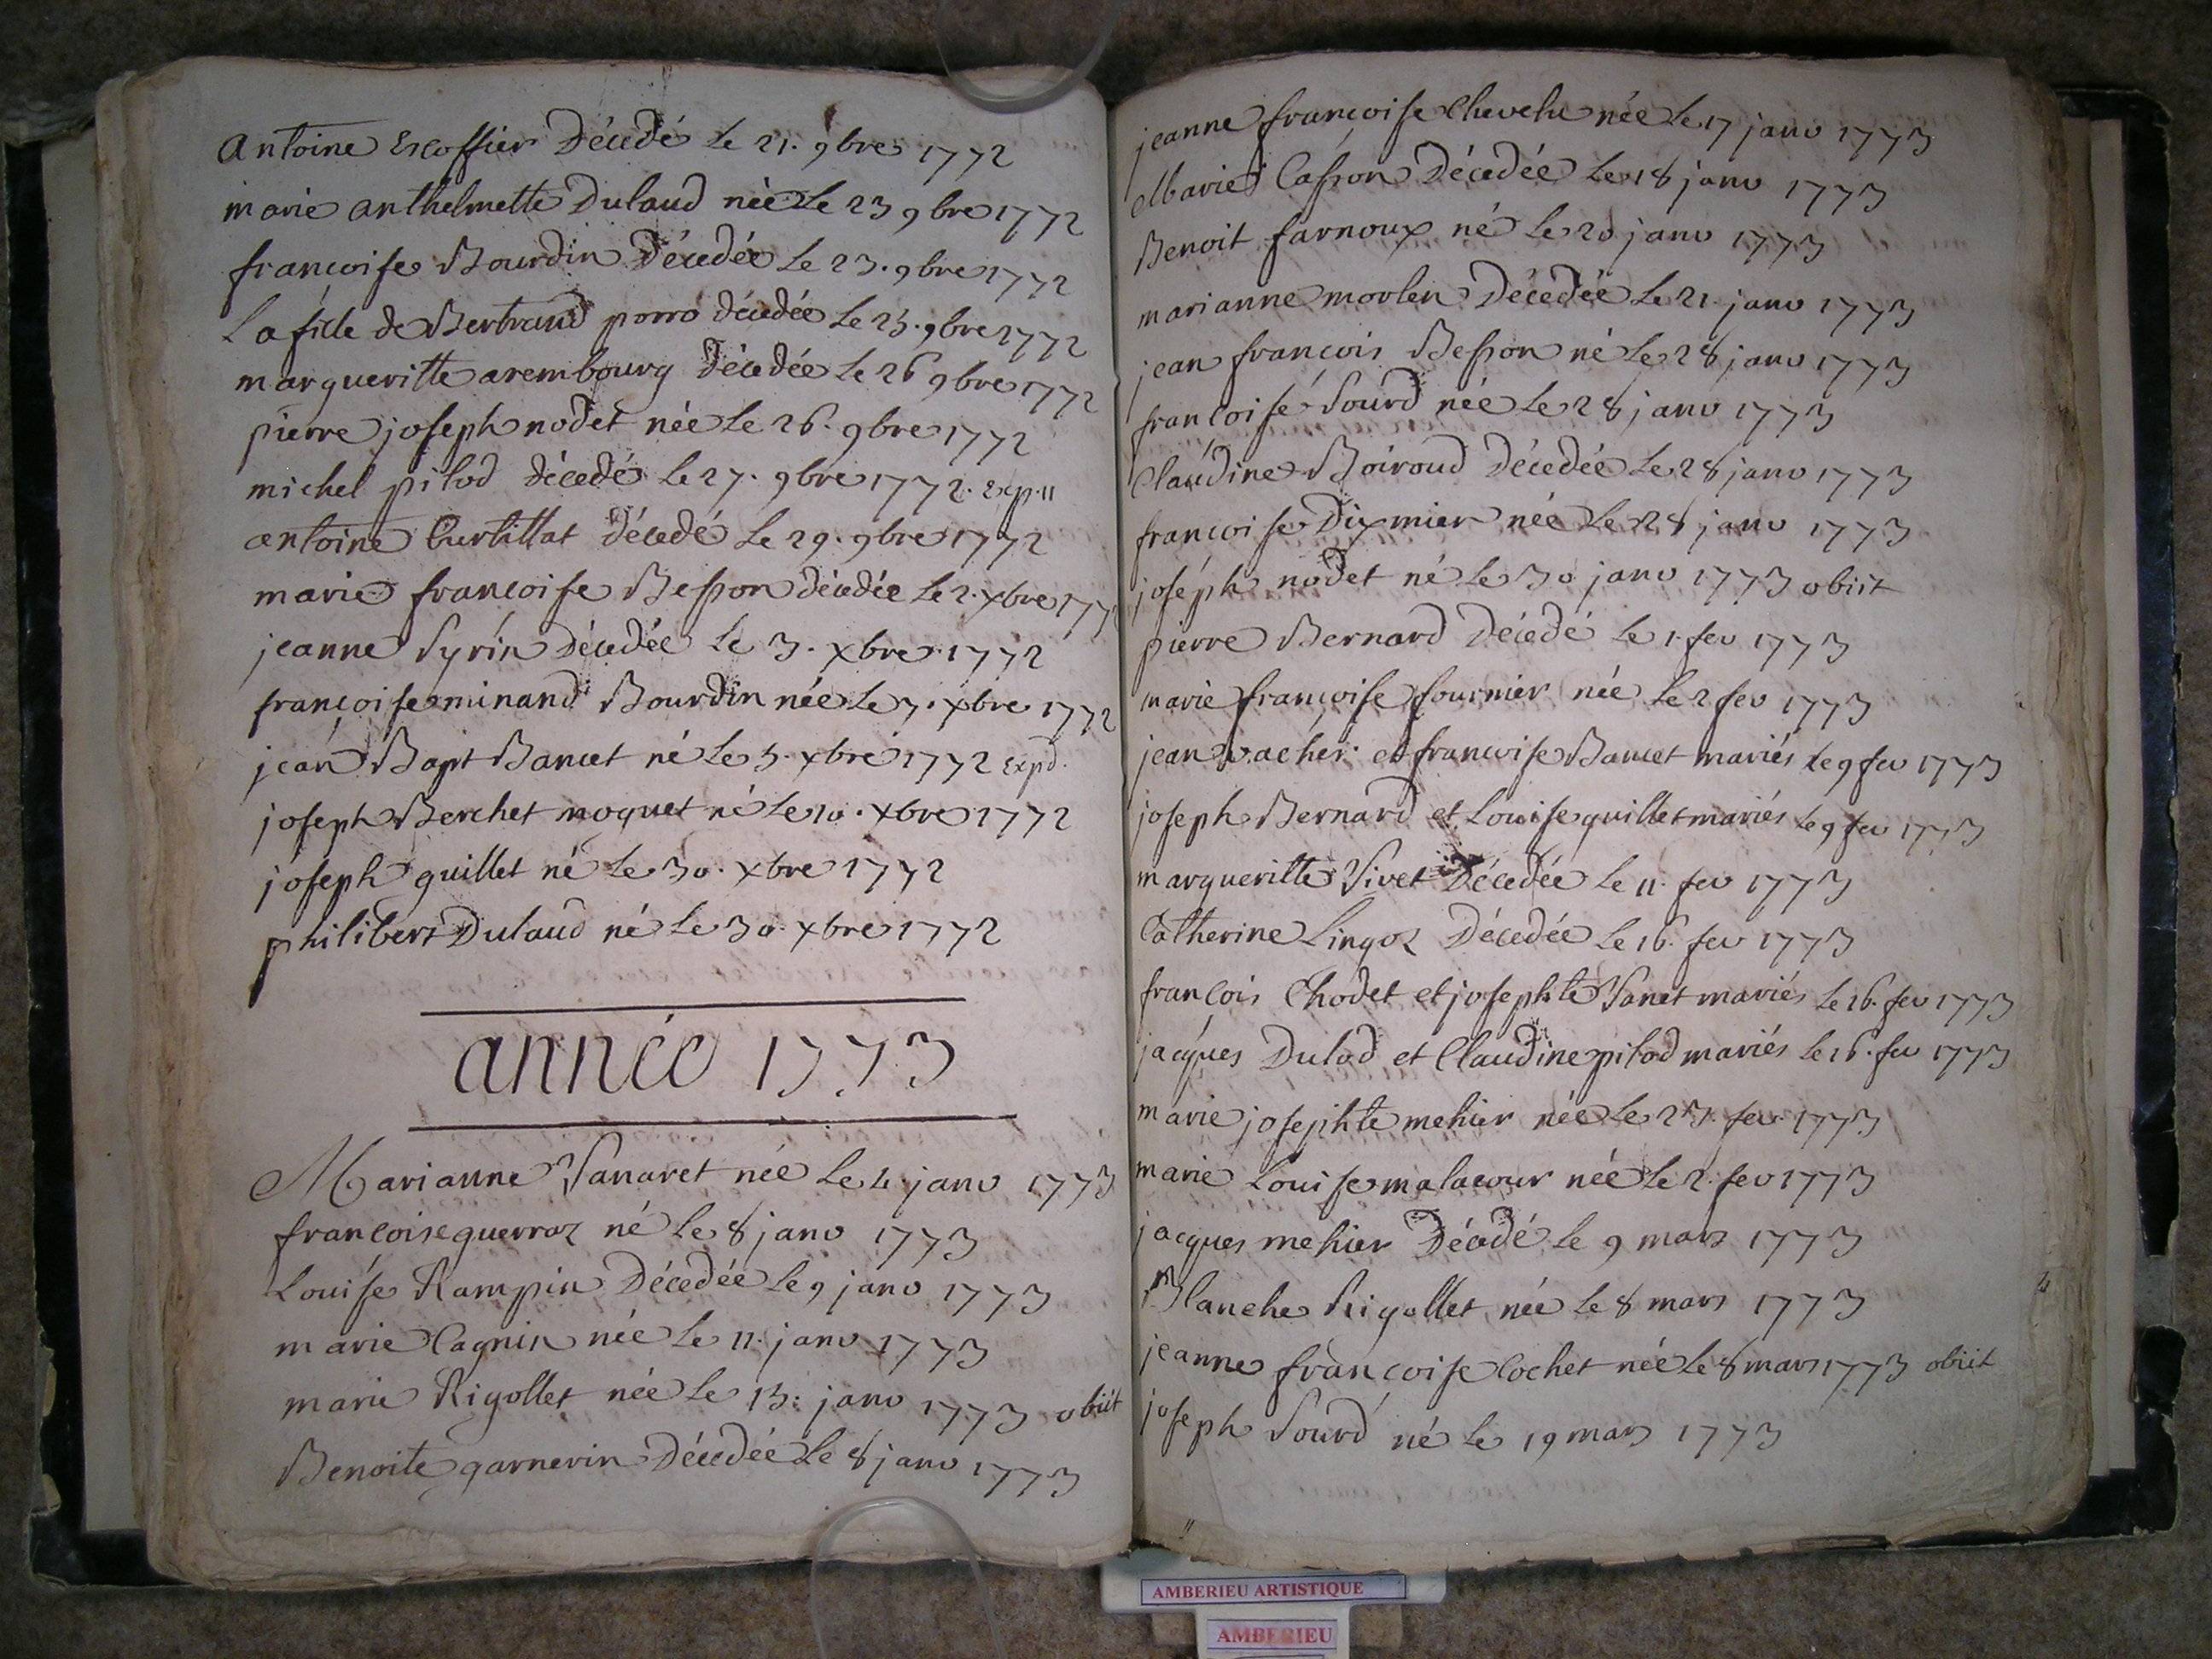 antoine Escoffier Décedé le 21. 9bre 1772
marie anthelmette Dulaud née Le 23 9bre 1772
françoise Bourdin Décedée Le 23. 9bre 1772
La fille de Bertrand porro décedée Le 25. 9bre 1772
margueritte arembourg décedée Le 26 9bre 1772
pierre joseph nodet née Le 26. 9bre 1772
michel pilod décedé Le 27. 9bre 1772. exp. 11
antoine Curtillat décedé Le 29. 9bre 1772
marie françoise Besson décedée Le 2. xbre 1772
jeanne Syrin Décedée Le 3. xbre 1772
françoise minand Bourdin née Le 3. xbre 1772
jean Bapt Bancet né Le 5. xbre 1772 Expd.
joseph Berchet moquet né Le 10. xbre 1772
joseph guillet né Le 30. xbre 1772
philibert Dulaud né Le 30. xbre 1772
année 1773
Marianne Vanaret née Le 4 janv 1773
françoise guerroz né Le 8 janv 1773
Louise Rampin Décedée Le 9 janv 1773
marie Cagnin née Le 11. janv 1773
marie Rigollet née Le 15. janv 1773 obiit
Benoite garnerin Décedée Le 8 janv 1773
jeanne françoise Chevelu née Le 17 janv 1773
Marie Casson Décedée Le 18 janv 1773
Benoit farnoux né Le 20 janv 1773
marianne morlen Décedée Le 21. janv 1773
jean françois Besson né Le 28 janv 1773
françoise Sourd née Le 28 janv 1773
Claudine Boiroud Décedée Le 28 janv 1773
françoise Dixmier née Le 28 janv 1773
joseph nodet né Le 30 janv 1773 obiit
pierre Bernard Décedé Le 1. fev 1773
marie françoise fournier née Le 2 fev 1773
jean vacher et françoise Bancet mariés Le 9 fev 1773
joseph Bernard et Louise guillet mariés Le 9 fev 1773
margueritte Vivet Décedée Le 11. fev 1773
Catherine Lingoz Décedée Le 16. fev 1773
françois Chodet et josephte Vanet mariés Le 16. fev 1773
jacques Dulod et Claudine pilod mariés Le 16. fev 1773
marie josephte mehier née Le 23. fev. 1773
marie Louise malacour née Le 2. fev 1773
jacques mehier Décedé Le 9 mars 1773
Blanche Rigollet née Le 8 mars 1773
jeanne françoise Cochet née Le 8 mars 1773 obiit
joseph Sourd né Le 19 mars 1773
AMBERIEU ARTISTIQUE
AMBERIEU